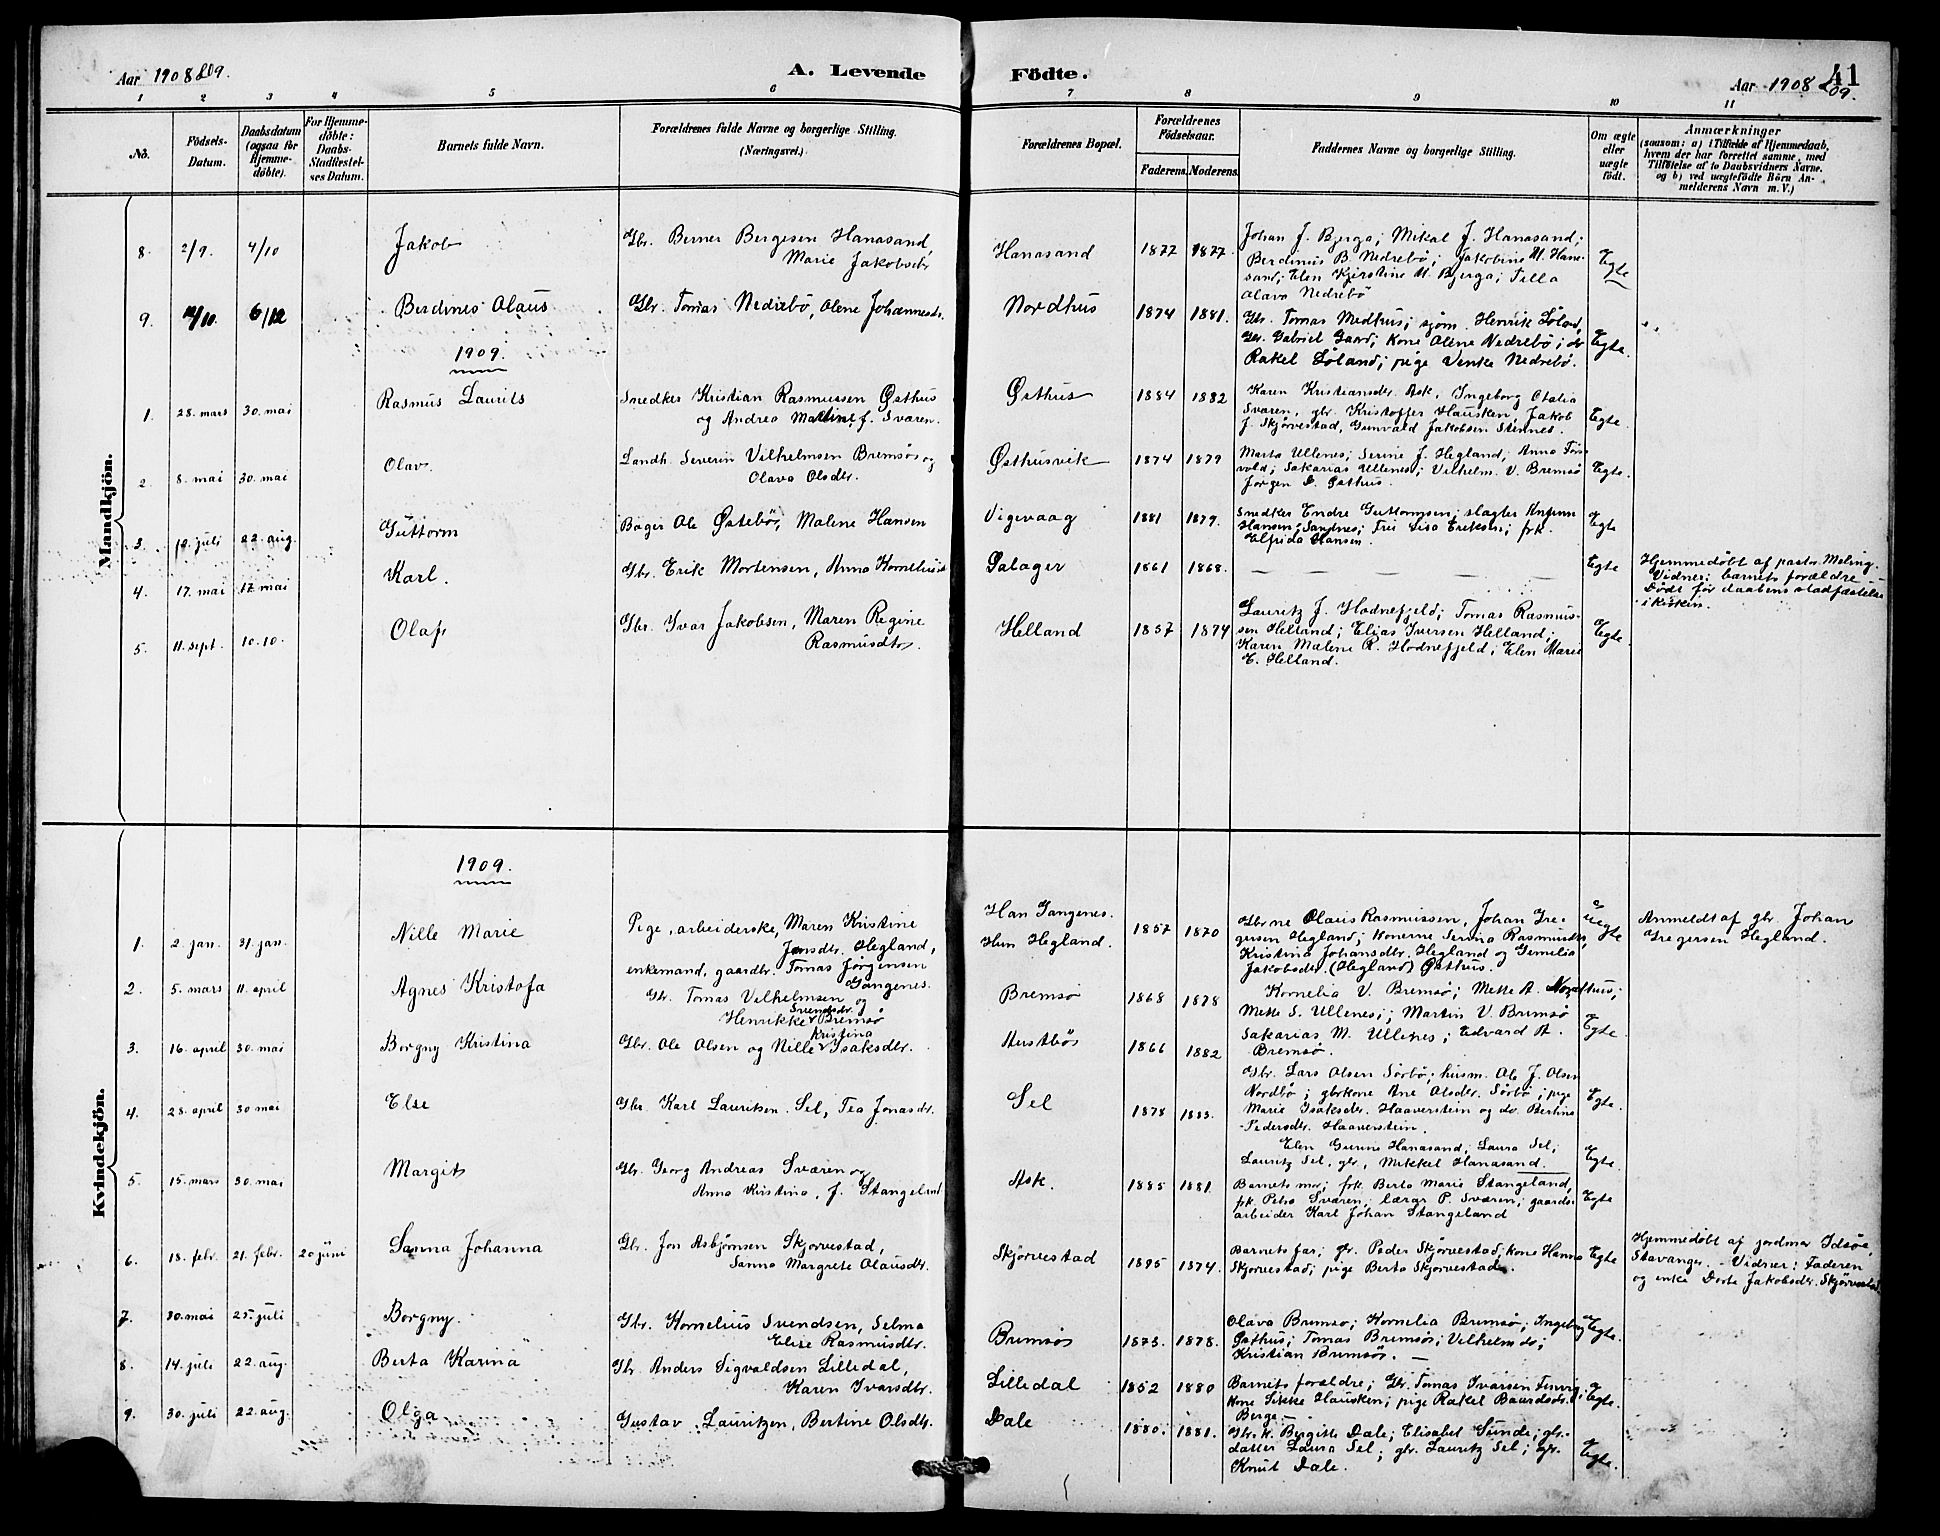 Aar 1908 & 09.
A. Levende
Födte.
Aar 1908 & 09.
41
1 2 3 4 5 6 7 8 9 10 11
No.
Födsels-
Datum.
Daabsdatum
(ogsaa for
Hjemme-
döbte).
For Hjemme-
döbte:
Daabs-
Stadfestel-
ses Datum.
Barnets fulde Navn.
Forældrenes fulde Navne og borgerlige Stilling.
(Næringsvei.)
Forældrenes Bopæl.
Forældrenes
Födselsaar.
Faderens. Moderens.
Faddernes Navne og borgerlige Stilling.
Om ægte
eller
uægte
födt.
Anmærkninger
(saasom: a) i Tilfælde af Hjemmedaab,
hvem der har forrettet samme, med
Tilföielse af to Daabsvidners Navne.
og b) ved uægtefödte Börn An-
melderens Navn m. V.)
Mandkjön.
8. 2/9. 4/10 Jakob
Gbr. Berner Bergesen Hanasand,
Marie Jakobsdr.
Hanasand 1872 1877.
Johan J. Bjerga; Mikal J. Hanasand;
Berdinius B. Nedrebö; Jakobine M. Hana-
sand; Elen Kjerstine M. Bjerga; Tilla
Olava Nedrebö
Egte
9. 6/12 Berdines Olaus
Gbr. Tomas Nedrebö, Olene Johannesdr.
Nordhus 1874 1881.
Gbr. Tomas Medhus; sjöm. Henrik Söland,
Gbr. Gabriel Gaard; Kone Olene Nedrebö; do
Rakel Söland; pige Venke Nedrebö.
Egte.
1909.
1. 28. mars 30. mai Rasmus Laurits
Snedker Kristian Rasmussen Østhus
og Andrea Martine, f. Sværen.
Østhus 1884 1882
Karen Kristiansdr. Ask, Ingeborg Otalia
Sværen, gbr. Kristoffer Hausken, Jakob
J. Skjörvestad, Gunvald Jakobsen Stennes.
Egte.
2. 8. mai 30. mai Olav.
Landh. Severin Vilhelmsen Bremsö og
Olava Olsdtr.
Østhusvik 1874 1879
Marta Ullenes; Serine J. Hegland; Anna Tors-
vold; Sakarias Ullenes; Vilhelm V. Bremsö
Jörgen D. Østhus.
Egte.
3. 12. juli 22. aug. Guttorm
Bager Ole Östebö, Malene Hansen
Vigevaag 1881 1879.
Snedker Endre Guttormsen; slagter
Hansen, Sandnes; Fru Lisa Eriksen; frk.
Elfrida Hansen.
Egte
4. 17. mai 17. mai Karl.
Gbr. Erik Mortensen, Anna Korneliusd.
Dalager 1861 1868.
— — — — —
Egte
Hjemmedöbt af pastor Meling.
Vidner: barnets forældre —
Död för daabens stadfæstelse
i kirken.
5. 11. sept. 10.10. Olaf
Gbr. Ivar Jakobsen, Maren Regine
Rasmusdtr.
Helland 1857 1874
Lauritz J. Hodnefjeld; Tomas Rasmus-
sen Helland; Elias Iversen Helland;
Karen Malene R. Hodnefjeld; Elen Marie
E. Helland.
Egte.
Kvindekjön.
1909.
1. 2. jan. 31. jan. Nille Marie
Pige, arbeiderske, Maren Kristine
Jonsdr. Hegland,
enkemand, gaardbr. Tomas Jørgensen
Gangenes.
Han Gangenes.
Hun Hegland.
1857 1870
Gbrne Olaus Rasmussen, Johan Gre-
gersen Hegland; Konerne Serina Rasmusdr,
Kristina Johansdtr. Hegland og Gemelia
Jakobsdr. (Hegland) Østhus.
Uegte
Anmeldt af gbr. Johan
Gregersen Hegland.
2. 5. mars 11. april Agnes Kristofa
Gbr. Tomas Vilhelmsen og
Svendsdr.
Henrikke Bremsö
Bremsö 1868 1878
Kornelia V. Bremsö; Mette A. Nordhus;
Mette S. Ullenes; Martin V. Bremsö
Sakarias M. Ullenes; Edvard A.
Bremsö.
Egte.
3. 16. april 30. mai Borgny Kristina
Kristina
Gbr. Ole Olsen og Nille Isaksdtr.
Austbö 1866 1882
Gbr. Lars Olsen Sörbö; husm. Ole J. Olsen
Nordbö; gbrkone Ane Olsdtr. Sörbö; pige
Marie Isaksdtr. Haaverstein og do. Bertine
Pedersdtr. Haaverstein.
Egte.
4. 28. april 30 mai Else
Gbr. Karl Lauritzen Sel, Tea Jonasdr.
Sel 1878 1883.
Elen Gurine Hanasand; Laura Sel;
Lauritz Sel, gbr, Mikkel Hanasand.
Egte.
5. 15. mars 30. mai Margit
Gbr. Georg Andreas Sværen og
Anna Kristina, f. Stangeland
Ask. 1885 1881.
Barnets mor; frk. Berta Marie Stangeland,
frk. Petra Sværen; lærer P. Sværen; gaards-
arbeider Karl Johan Stangeland
Egte
6. 18. febr. 21. febr. 20 juni Sanna Johanna
Gbr. Jon Asbjørnsen Skjørvestad,
Sanna Margrete Olausdtr.
Skjörvestad 1875 1874.
Barnets far; gbr. Peder Skjørvestad, kone Hanna
Skjorvestad; pige Berta Skjorvestad.
Egte
Hjemmedöbt af jordmor Idsöe,
Stavanger. – Vidner: Faderen
og enke Dorte Jakobsdtr. Skjørvestad
7. 30. mai 25. juli Borgny.
Gbr. Kornelius Svendsen, Selma
Elise Rasmusdtr.
Bremsö 1873. 1878.
Olava Bremsö; Kornelia Bremsö; Ingeborg
Østhus; Tomas Bremsö; Vilhelm do;
Kristian Bremsö. —
Egte.
8. 14. juli 22. aug. Berta Karina
Gbr. Anders Sigvaldsen Lilledal,
Karen Ivarsdtr.
Lilledal 1852 1880
Barnets forældre; Gbr. Tomas Ivarsen
kone Sikke Hausken; pige Rakel Baardsdr.
Berge —
Egte.
9. 30. juli 22. aug. Olga
Gustav Lauritzen, Bertine Olsdtr.
Dale 1880. 1881.
Gbr. k. Bergitte Dale; Elisabet Sunde; gbr.
datter Laura Sel; gbr. Lauritz Sel; gbr.
Knut Dale.
Egte.